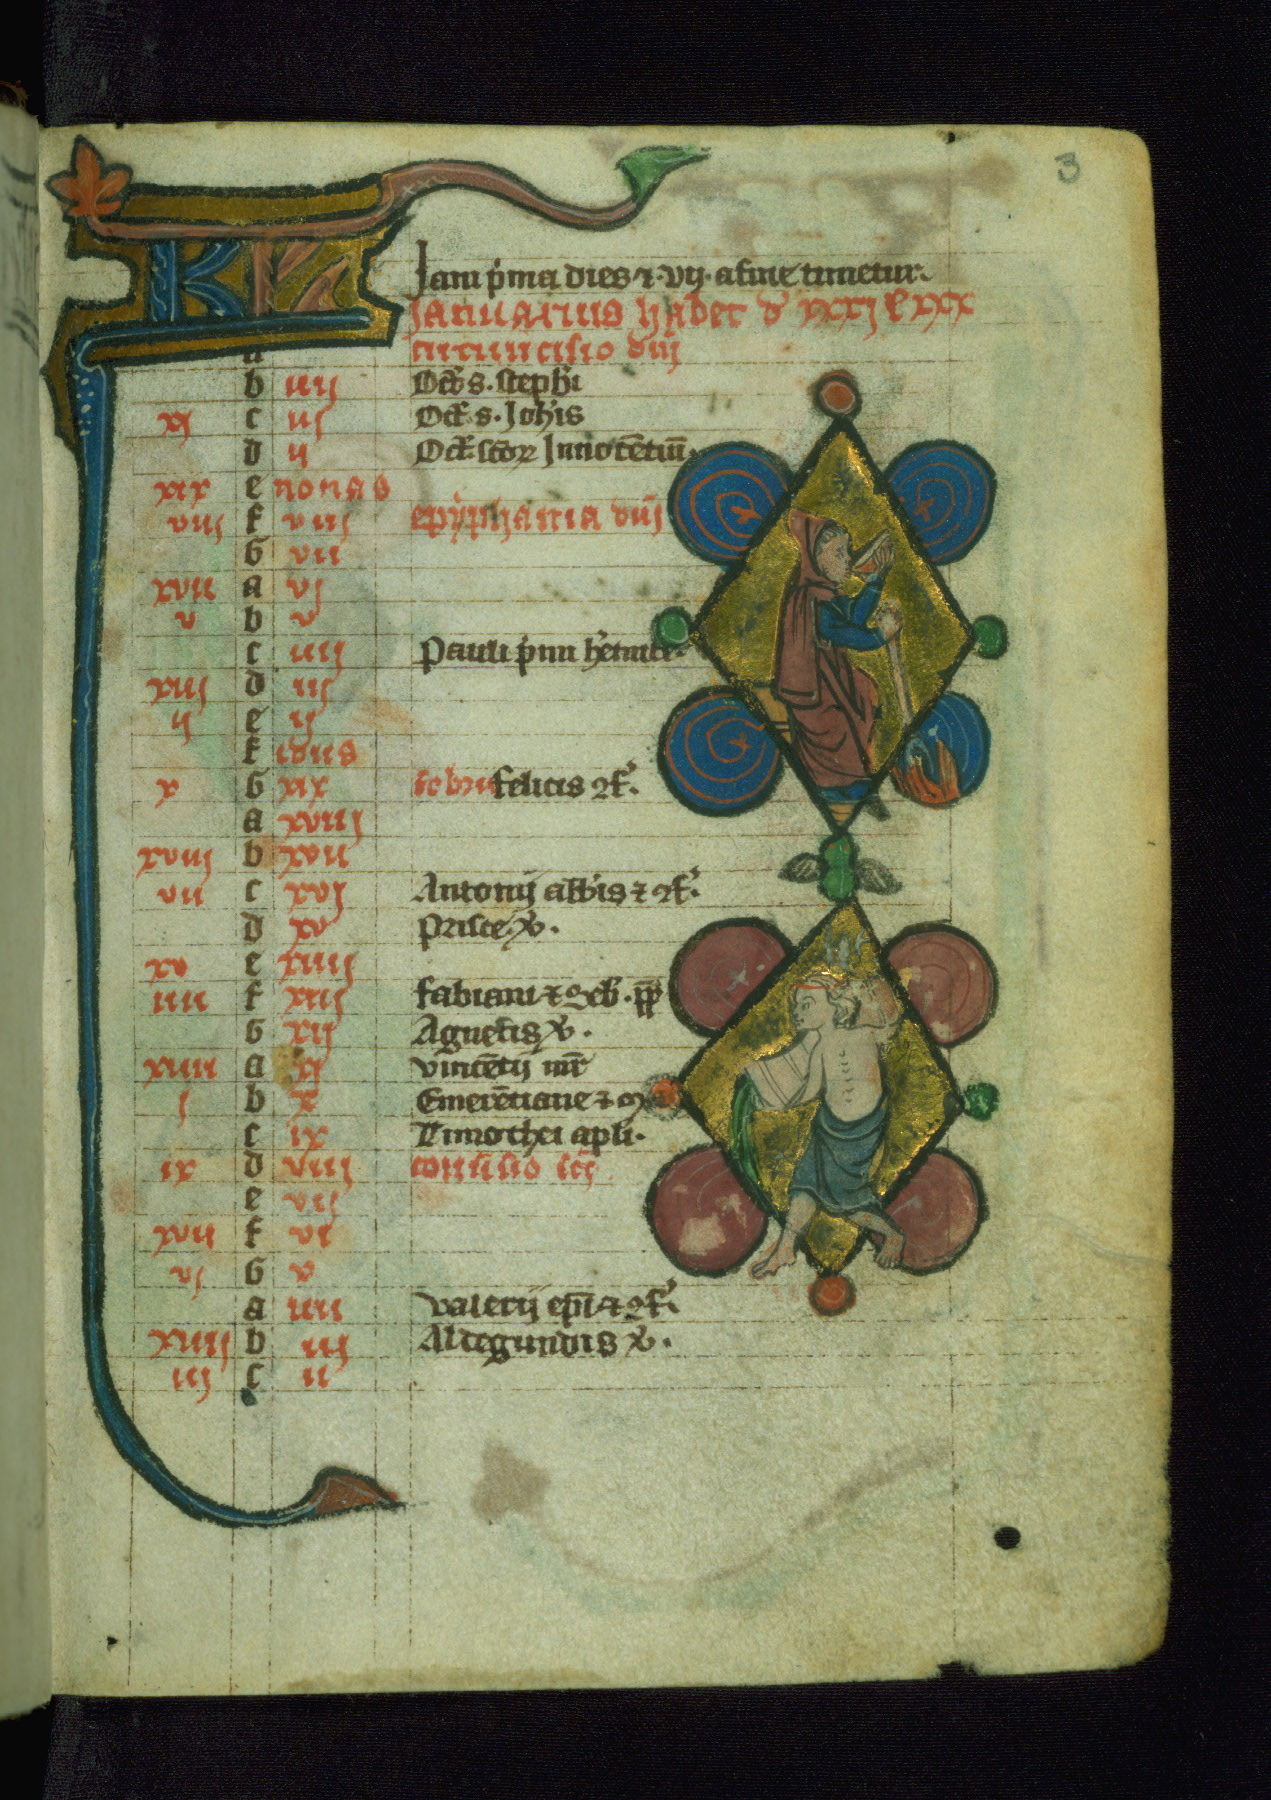 3
KL
Jani p'ma dies ⁊ .vij. a fine timetur.
Januarius habet d' xxxj l' xxx
a circuncisio dn̄i
b iiij Oct̄ s. steph'i
xj c iij Oct̄ s. Joh'is
d ij Oct̄ sc̄oꝝ Innocētiū.
xix e nonas
viij f viij epyphania dn̄i
G vii
xvii a vj
v b v
c iiij Pauli p'mi h'emite.
xiij d iij
ij e ij
f idus
x G xix felicis ⁊
a xviij
xviij b xvii
vii c xvj Antonij abb'is ⁊
d xv Prisce. v̄.
xv e xiiij
iiii f xiij fabiani ⁊ Seb'.
G xii Agnetis v̄.
xiiii a xj vincētij mr̄
j b x Emerētiane ⁊
c ix Timothei apl'i.
ix d viij conu'sio
e vij
xvii f vi
vj G v
a iiii valerij ep̄i ⁊
xiiij b iij Aldegundis v̄.
iij c ii